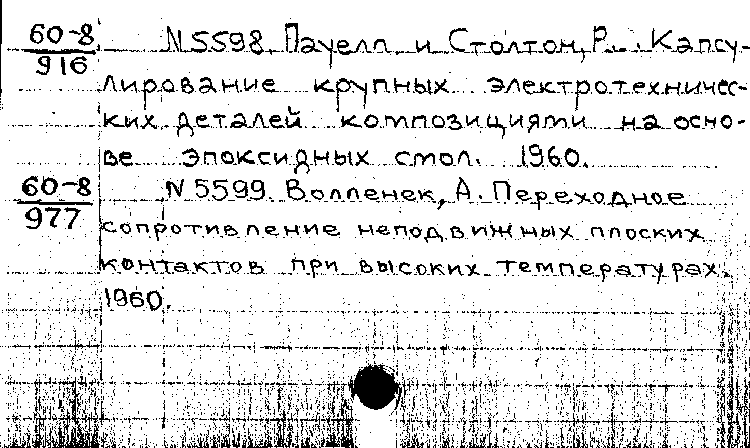 60-8 N 5598. Пауелл и Столтон, Р... Капсу-
916
лирование крупных электротехничес-
ких деталей композициями на осно-
ве эпоксидных смол. 1960.
60-8 N 5599 Волленек, А. Переходное
977
сопротивление неподвижных плоских
контактов при высоких температурах.
1960.